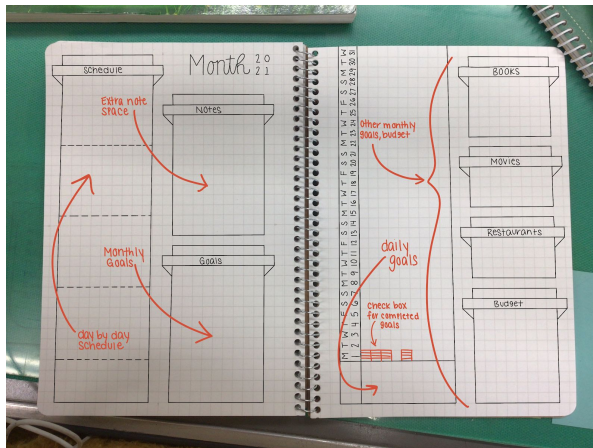 Schedule
Month 20
21
Extra note
space
Notes
Monthly
Goals
Goals
day by day
schedule
M T W T F S S M T W T F S S M T W T F S S M T W T F S S M T W
1 2 3 4 5 6 7 8 9 10 11 12 13 14 15 16 17 18 19 20 21 22 23 24 25 26 27 28 29 30 31
Other monthly
goals, budget
daily
goals
check box
for completed
goals
BOOKS
Movies
Restaurants
Budget